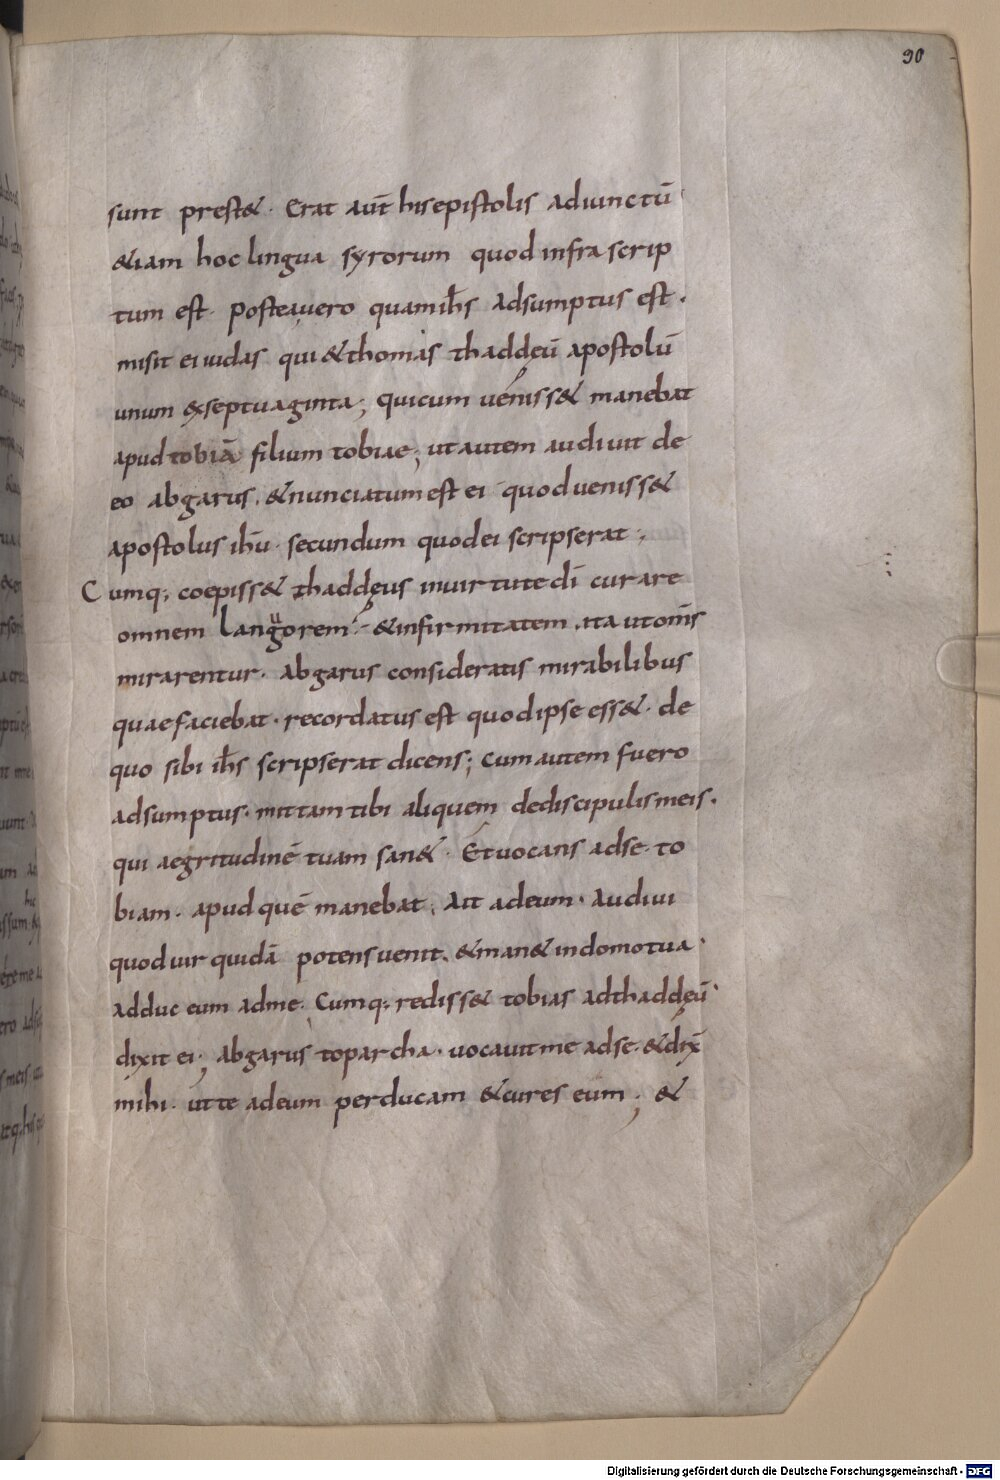 90
sunt prest&. Erat aut̄ hisepistolis adiunctū
&iam hoc lingua syrorum quod infra scrip
tum est. Posteavero quamih̄s adsumptus est.
misit ei iudas qui &thomas thaddęū apostolū
unum exseptuaginta; quicum veniss& manebat
apud tobiā filium tobiae; ut autem audivit de
eo abgarus. &nunciatum est ei quod veniss&
apostolus ih̄u secundum quod ei scripserat;
Cumq; coepiss& thaddęus invirtute dī curare
omnem languorem &infirmitatem. ita utom̄s
mirarentur. Abgarus consideratis mirabilibus
quae faciebat. recordatus est quod ipse ess&. de
quo sibi ih̄s scripserat dicens; cum autem fuero
adsumptus. mittam tibi aliquem dediscipulis meis.
qui aegritudinē tuam san&. Et vocans adse to
biam. apud quē manebat. Ait adeum. Audivi
quod vir quidā potens venit. &man& indomo tua.
adduc eum adme. Cumq; rediss& tobias adthaddęū
dixit ei; abgarus toparcha. vocavit me adse. &dix̄
mihi. ut te adeum perducam &cures eum; &
Digitalisierung gefördert durch die Deutsche Forschungsgemeinschaft - DFG